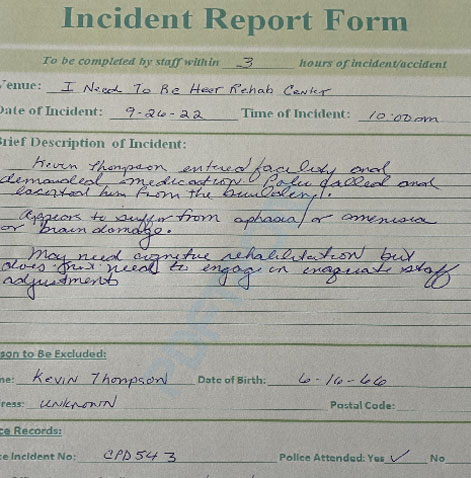 Incident Report Form
To be completed by staff within 3 hours of incident/accident
Venue: I Need To Be Heer Rehab Center
Date of Incident: 9-26-22 Time of Incident: 10:00am
Brief Description of Incident:
Kevin Thompson entered facility and
demanded medication. Police called and
escorted him from the building.
Appears to suffer from aphasia/or amenisia
or brain damage.
May need cognitive rehabilitation but
does need to engage in staff
adjustments
son to Be Excluded:
me: Kevin Thonpson Date of Birth: 6-16-66
ress: UNKNOWN Postal Code:
ce Records:
ce Incident No: CPD543 Police Attended: Yes ✓ No